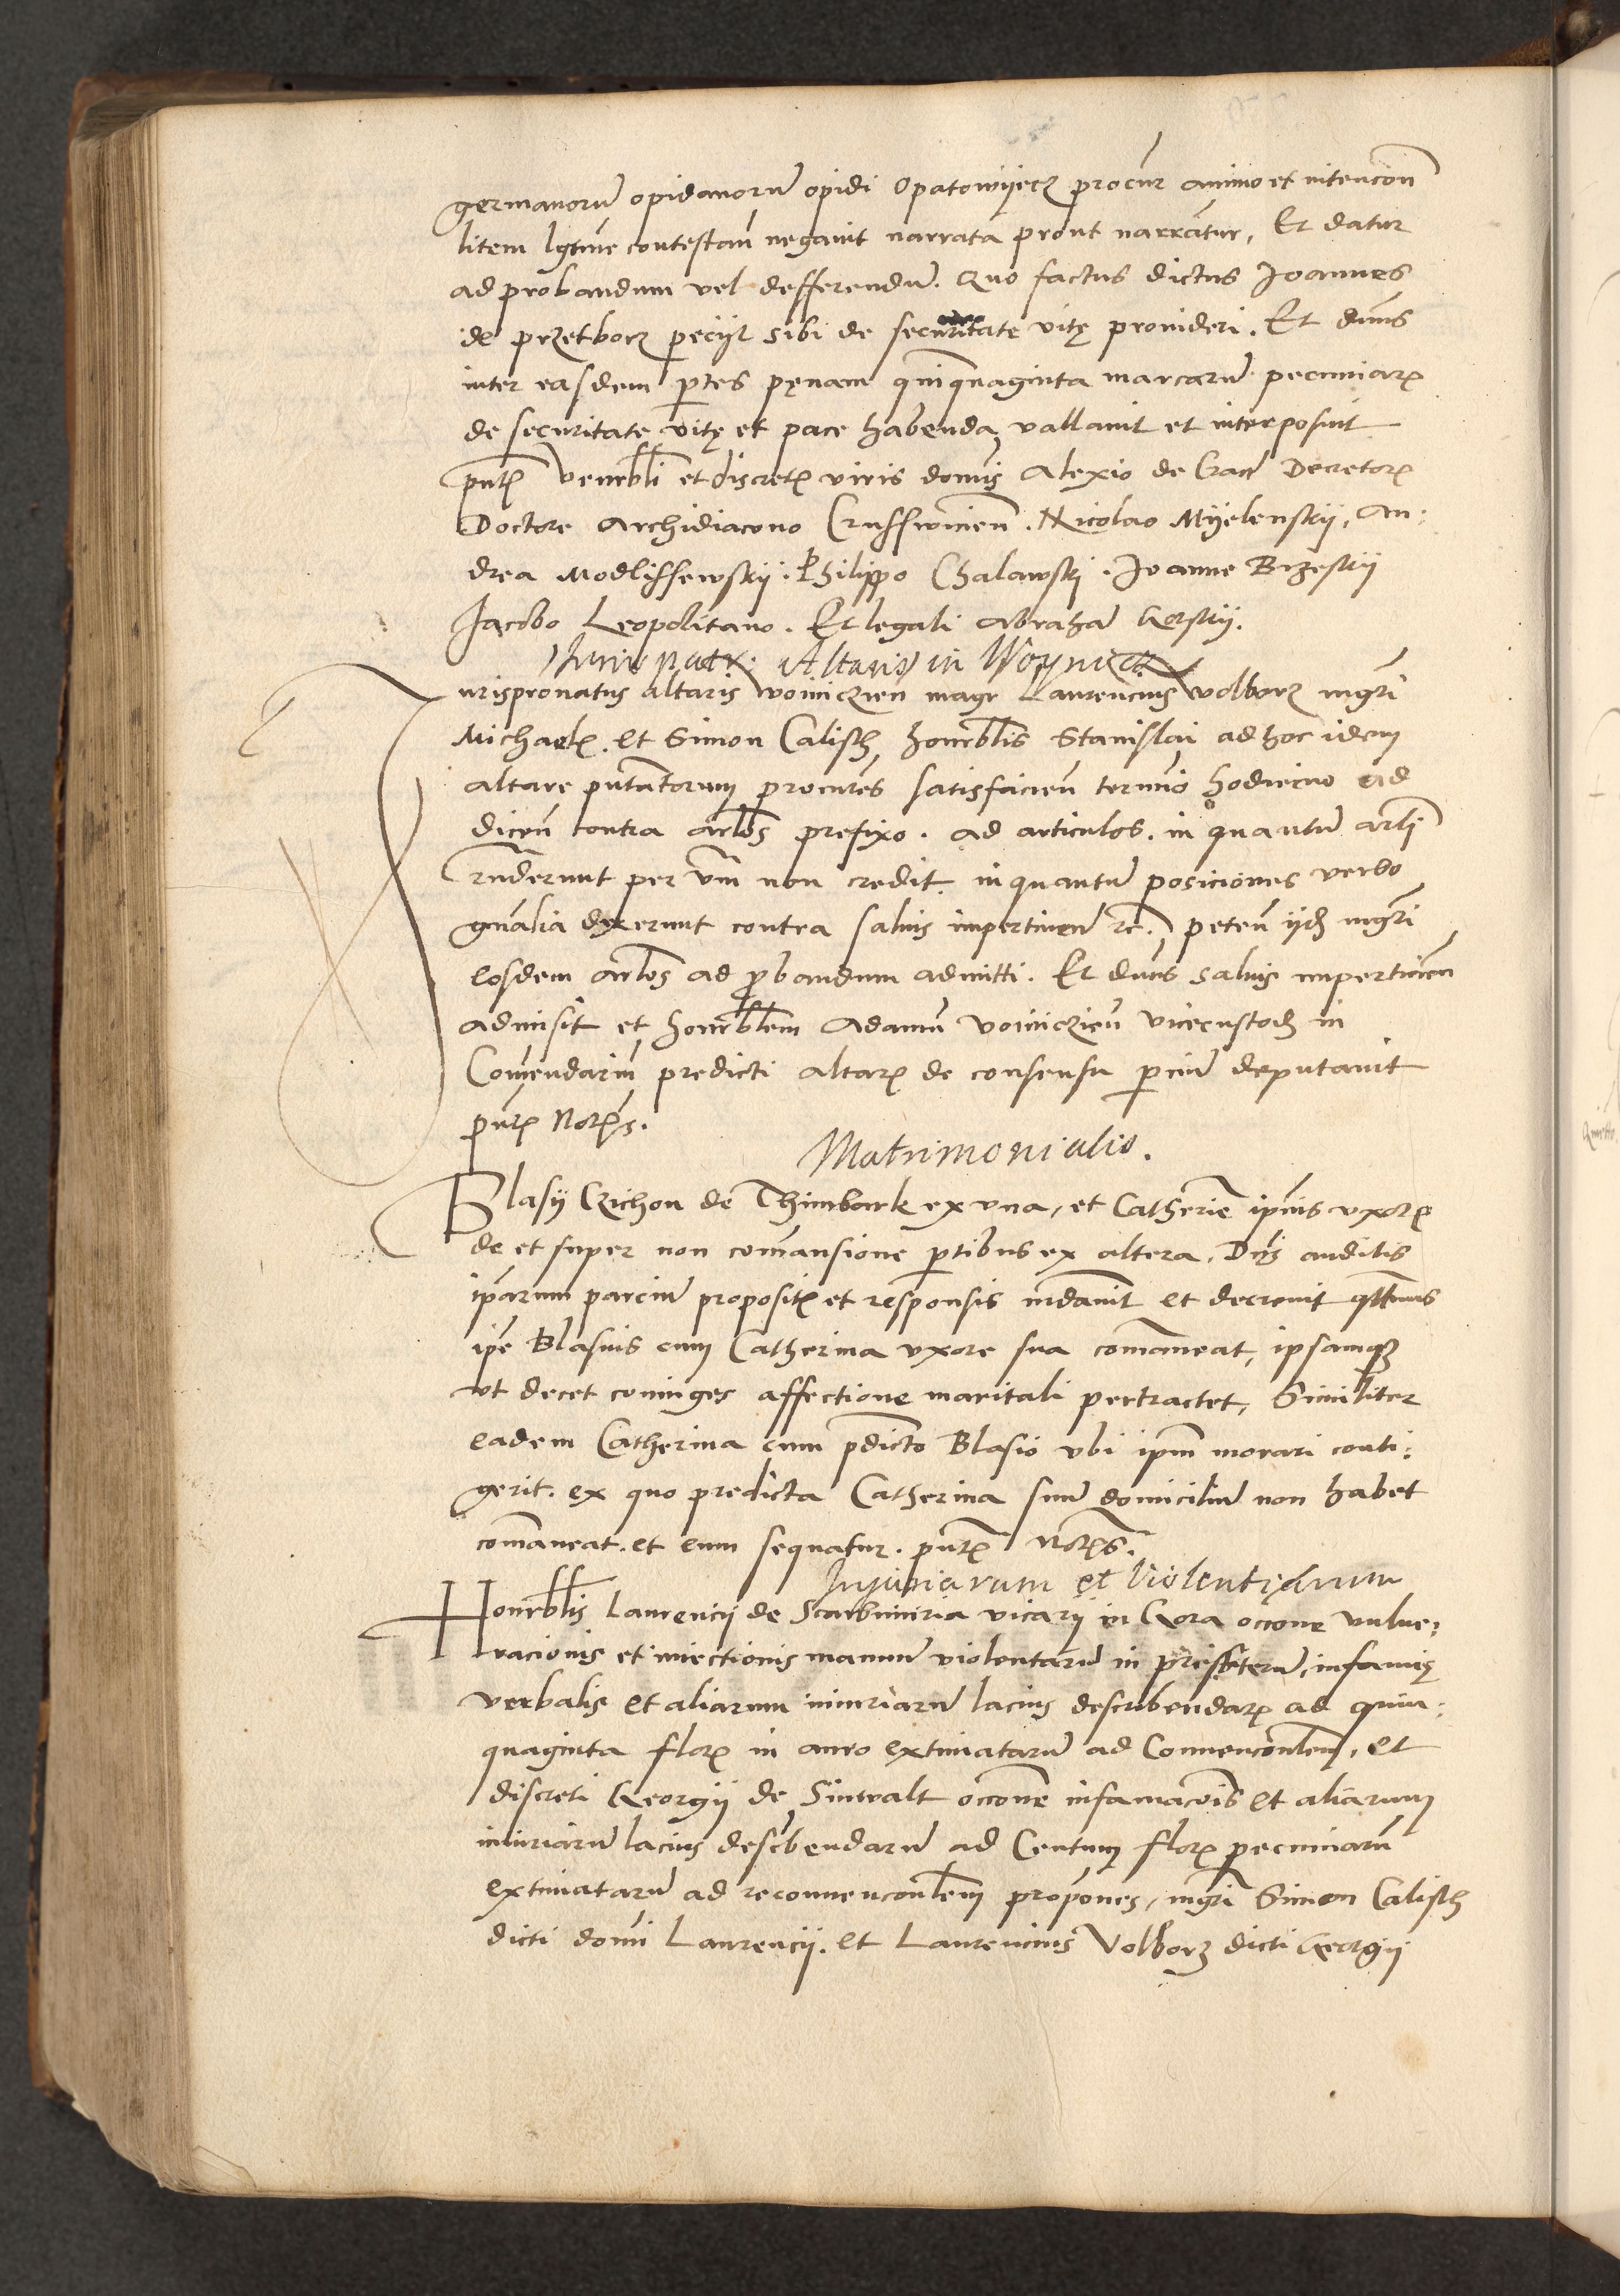 germanorum opidanorum opidi Opatowyecz procur animo et intencon
litem lgtme contestan negavit narrata prout narrantur, Et datur
ad probandum vel defferendum. Quo factus dictus Joannes
de Przetborz peciit sibi de securitate vitę provideri. Et dnus
inter easdem partes pęnam quinquaginta marcarum pecuniar
de securitate vitę et pace habenda vallavit et interposuit
pntt venrbli et discret viris domis Alexio de Decretor
Doctore Archidiacono Crusswicien. Nicolao Myelenskij, An:
drea Modlissewskij. Philippo Chalawskj. Joanne Brzeskij
Jacobo Leopolitano. Et legali Abraham Gorskij.
Juris patr: Altaris in Woynicz
Jurispronatus altaris voiniczien magr Laurencius Wolborz mgri
Michael. et Simon Calisch honrblis Stanislai ad hoc idem
altare pntatorum procurtes satisfacien termino hodierno ad
dicen contra artlos prefixo. ad articulos. in quantum artli
rnderunt per vm non credit. in quantum posiciones verbo
gnalia dixerunt contra salvis impertinen rc. peten iid mgri
eosdem artlos ad probandum admitti. Et dnus salvis impertinen
admisit et honrblem Adamum voiniczien vicecustod in
Comendarium predicti altaris de consensu parcium deputavit
pntt Notris.
Matrimonialis.
Blasij Czichon de Thimbark ex una, et Catherine ipsius uxoris
de et super non comansione partibus ex altera. Dns auditis
iparum parcium propositis et responsis mdavit et decrevit qtenus
ipe Blasius cum Catherina uxore sua comaneat, ipsamque
ut decet coniuges affectione maritali pertractet, Similiter
eadem Catherina cum pdicto Blasio ubi ipm morari conti:
gerit. ex quo predicta Catherina suum domicilium non habet
comaneat. et eum sequatur. pntt Notris.
Injuriarum et violentiarum
Honrblis Laurencij de Scarbimiria vicarij in Gora occone vulne:
racionis et iniectionis manuum violentarum in presbiterum, infamię
verbalis et aliarum iniuriarum lacius describendar ad quin:
quaginta flor in auro extimatarum ad Convenconlem, et
discreti Georgij de Sinwalt occone infamacois et aliarum
iniuriarum lacius descbendarum ad Centum flor pecuniarum
extimatarum ad reconvenconlem propones, mgri Simon Calisch
dicti domi Laurencij. et Laurencius Volborz dicti Georgij